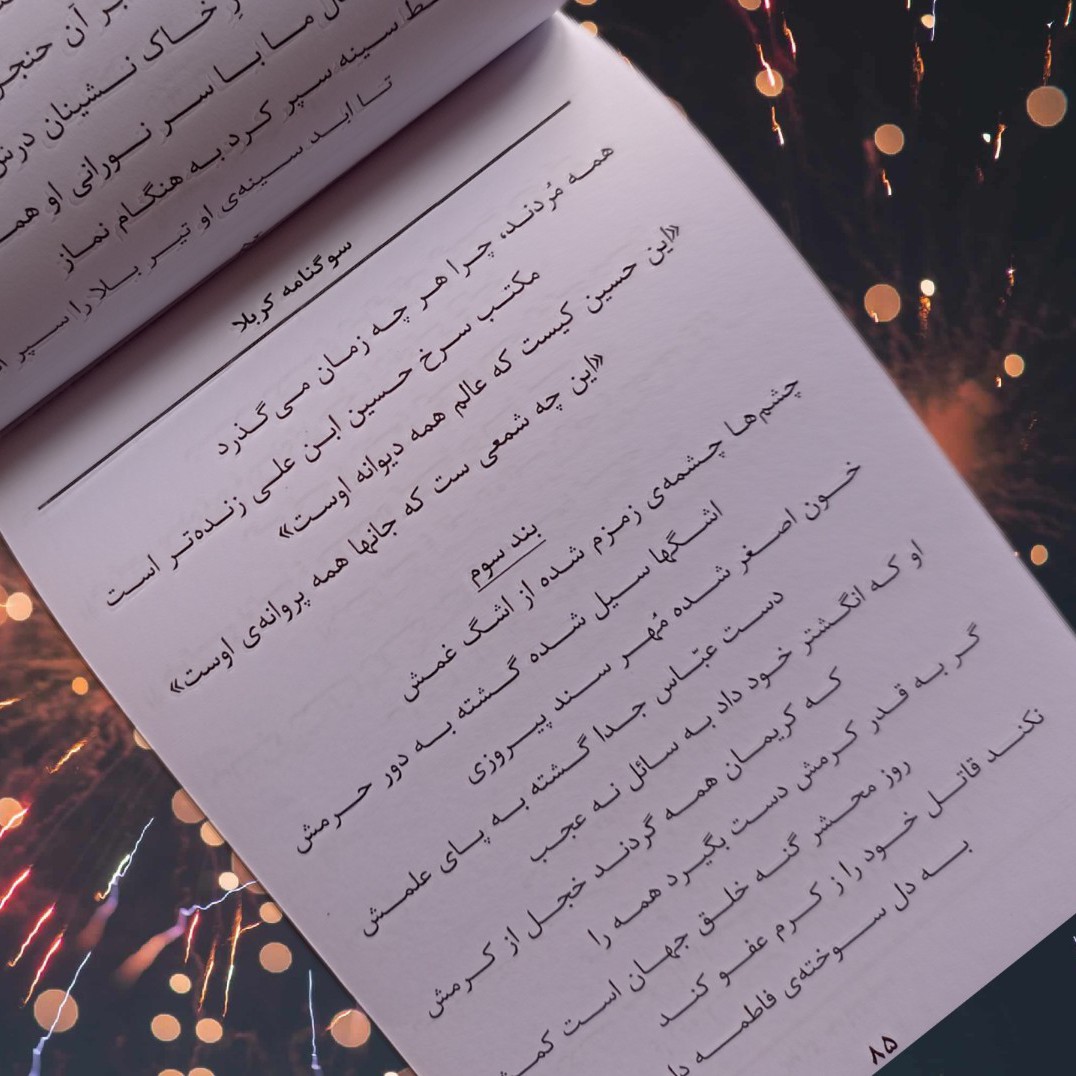 بر آن حنجر
خاک نشینان درش
ما با سر نورانی او همه
سینه سپر کرد به هنگام نماز
تا ابد سینه‌ی او تیر بلا را سپر
سوگنامه کربلا
همه مُردند، چرا هر چه زمان می‌گذرد
مکتب سرخ حسین ابن علی زنده‌تر است
«این حسین کیست که عالم همه دیوانه اوست»
«این چه شمعی ست که جانها همه پروانه‌ی اوست»
بند سوم
چشم‌ها چشمه‌ی زمزم شده از اشگ غمش
اشگها سیل شده گشته به دور حرمش
خون اصغر شده مُهر سند پیروزی
دست عبّاس جدا گشته به پای علمش
او که انگشتر خود داد به سائل نه عجب
که کریمان همه گردند خجل از کرمش
گر به قدر کرمش دست بگیرد همه را
روز محشر گنه خلق جهان است کمش
نکند قاتل خود را ز کرم عفو کند
به دل سوخته‌ی فاطمه
۸۵